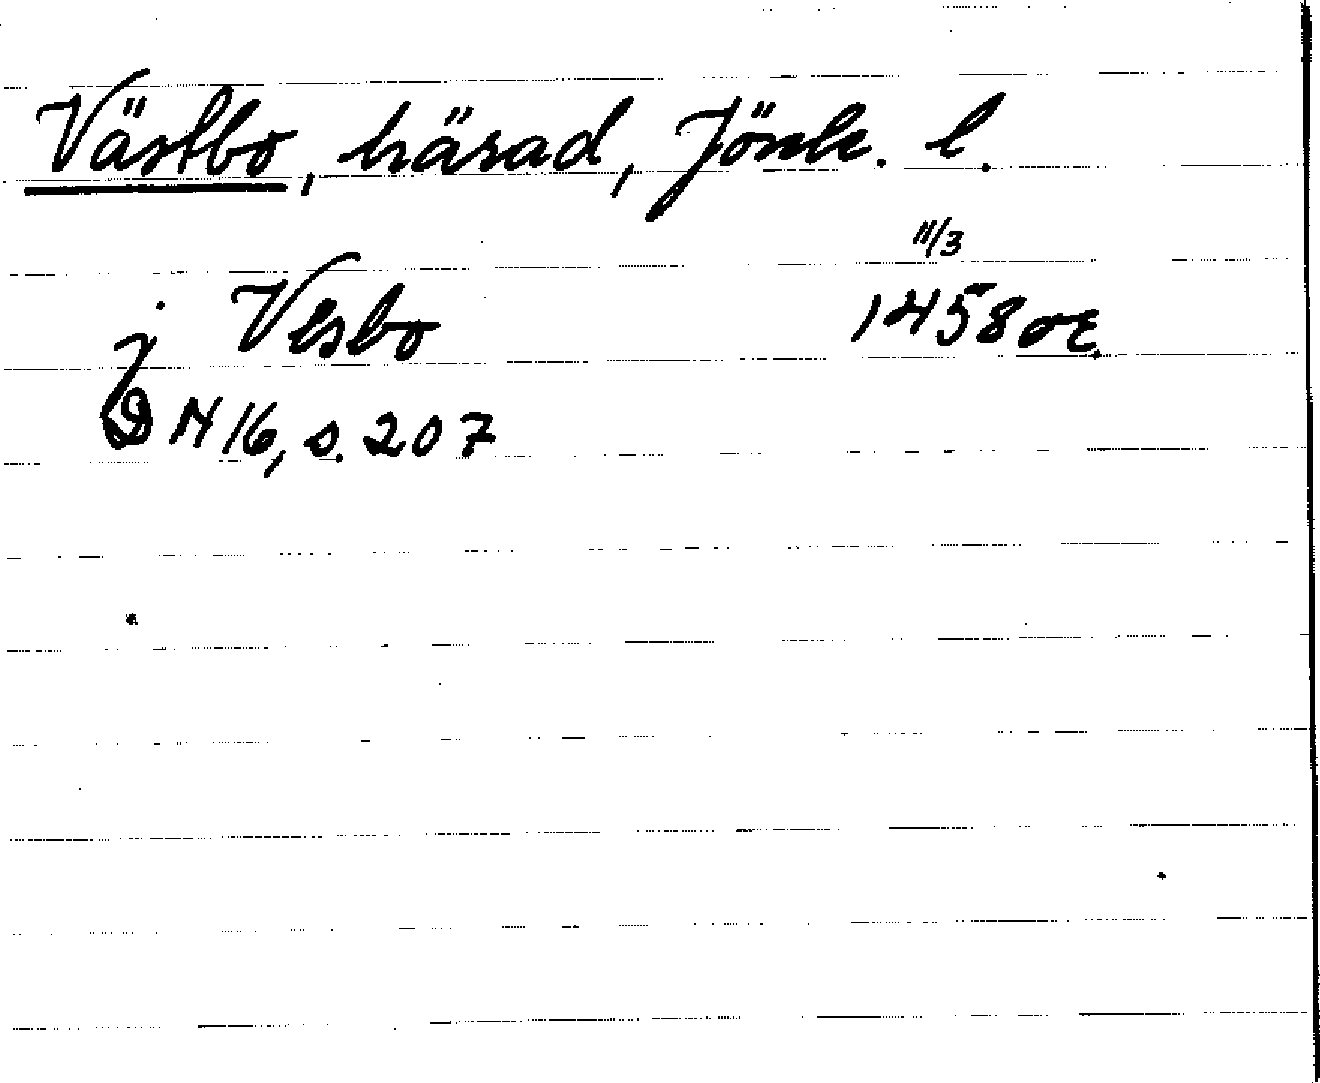 Västbo, härad, Jönk. l.
11/3
j Vesbo 1458 or.
DN 16, s. 207